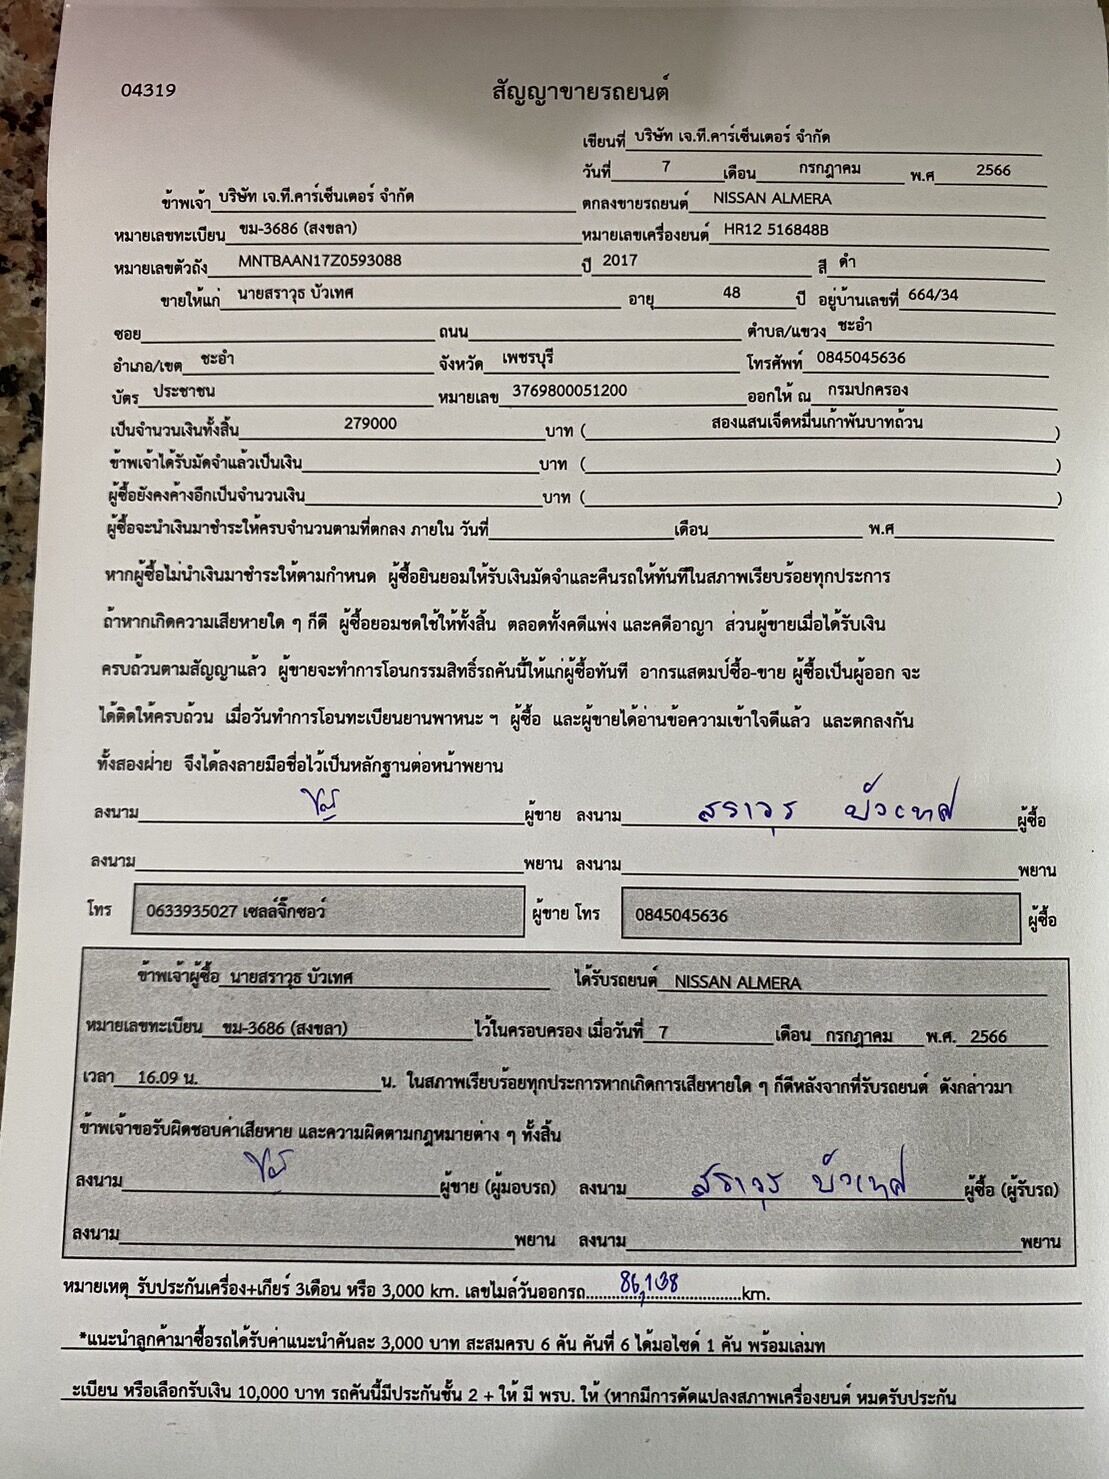 04319
สัญญาขายรถยนต์
เขียนที่ บริษัท เจ.ที.คาร์เซ็นเตอร์ จำกัด
วันที่ 7 เดือน กรกฎาคม พ.ศ 2566
ข้าพเจ้า บริษัท เจ.ที.คาร์เซ็นเตอร์ จำกัด ตกลงขายรถยนต์ NISSAN ALMERA
หมายเลขทะเบียน ขม-3686 (สงขลา) หมายเลขเครื่องยนต์ HR12 516848B
หมายเลขตัวถัง MNTBAAN17Z0593088 ปี 2017 สี ดำ
ขายให้แก่ นายสราวุธ บัวเทศ อายุ 48 ปี อยู่บ้านเลขที่ 664/34
ซอย ถนน ตำบล/แขวง ชะอำ
อำเภอ/เขต ชะอำ จังหวัด เพชรบุรี โทรศัพท์ 0845045636
บัตร ประชาชน หมายเลข 3769800051200 ออกให้ ณ กรมปกครอง
เป็นจำนวนเงินทั้งสิ้น 279000 บาท ( สองแสนเจ็ดหมื่นเก้าพันบาทถ้วน )
ข้าพเจ้าได้รับมัดจำแล้วเป็นเงิน บาท ( )
ผู้ซื้อยังคงค้างอีกเป็นจำนวนเงิน บาท ( )
ผู้ซื้อจะนำเงินมาชำระให้ครบจำนวนตามที่ตกลง ภายใน วันที่ เดือน พ.ศ
หากผู้ซื้อไม่นำเงินมาชำระให้ตามกำหนด ผู้ซื้อยินยอมให้รับเงินมัดจำและคืนรถให้ทันทีในสภาพเรียบร้อยทุกประการ
ถ้าหากเกิดความเสียหายใด ๆ ก็ดี ผู้ซื้อยอมชดใช้ให้ทั้งสิ้น ตลอดทั้งคดีแพ่ง และคดีอาญา ส่วนผู้ขายเมื่อได้รับเงิน
ครบถ้วนตามสัญญาแล้ว ผู้ขายจะทำการโอนกรรมสิทธิ์รถคันนี้ให้แก่ผู้ซื้อทันที อากรแสตมป์ซื้อ-ขาย ผู้ซื้อเป็นผู้ออก จะ
ได้ติดให้ครบถ้วน เมื่อวันทำการโอนทะเบียนยานพาหนะ ฯ ผู้ซื้อ และผู้ขายได้อ่านข้อความเข้าใจดีแล้ว และตกลงกัน
ทั้งสองฝ่าย จึงได้ลงลายมือชื่อไว้เป็นหลักฐานต่อหน้าพยาน
ลงนาม ผู้ขาย ลงนาม สราวุธ บัวเทศ ผู้ซื้อ
ลงนาม พยาน ลงนาม พยาน
โทร 0633935027 เซลล์จิ๊กซอว์ ผู้ขาย โทร 0845045636 ผู้ซื้อ
ข้าพเจ้าผู้ซื้อ นายสราวุธ บัวเทศ ได้รับรถยนต์ NISSAN ALMERA
หมายเลขทะเบียน ขม-3686 (สงขลา) ไว้ในครอบครอง เมื่อวันที่ 7 เดือน กรกฎาคม พ.ศ. 2566
เวลา 16.09 น. น. ในสภาพเรียบร้อยทุกประการหากเกิดการเสียหายใด ๆ ก็ดีหลังจากที่รับรถยนต์ ดังกล่าวมา
ข้าพเจ้าขอรับผิดชอบค่าเสียหาย และความผิดตามกฎหมายต่าง ๆ ทั้งสิ้น
ลงนาม ผู้ขาย (ผู้มอบรถ) ลงนาม สราวุธ บัวเทศ ผู้ซื้อ (ผู้รับรถ)
ลงนาม พยาน ลงนาม พยาน
หมายเหตุ รับประกันเครื่อง+เกียร์ 3เดือน หรือ 3,000 km. เลขไมล์วันออกรถ 86,138 km.
*แนะนำลูกค้ามาซื้อรถได้รับค่าแนะนำคันละ 3,000 บาท สะสมครบ 6 คัน คันที่ 6 ได้มอไซด์ 1 คัน พร้อมเล่มท
ะเบียน หรือเลือกรับเงิน 10,000 บาท รถคันนี้มีประกันชั้น 2 + ให้ มี พรบ. ให้ (หากมีการดัดแปลงสภาพเครื่องยนต์ หมดรับประกัน